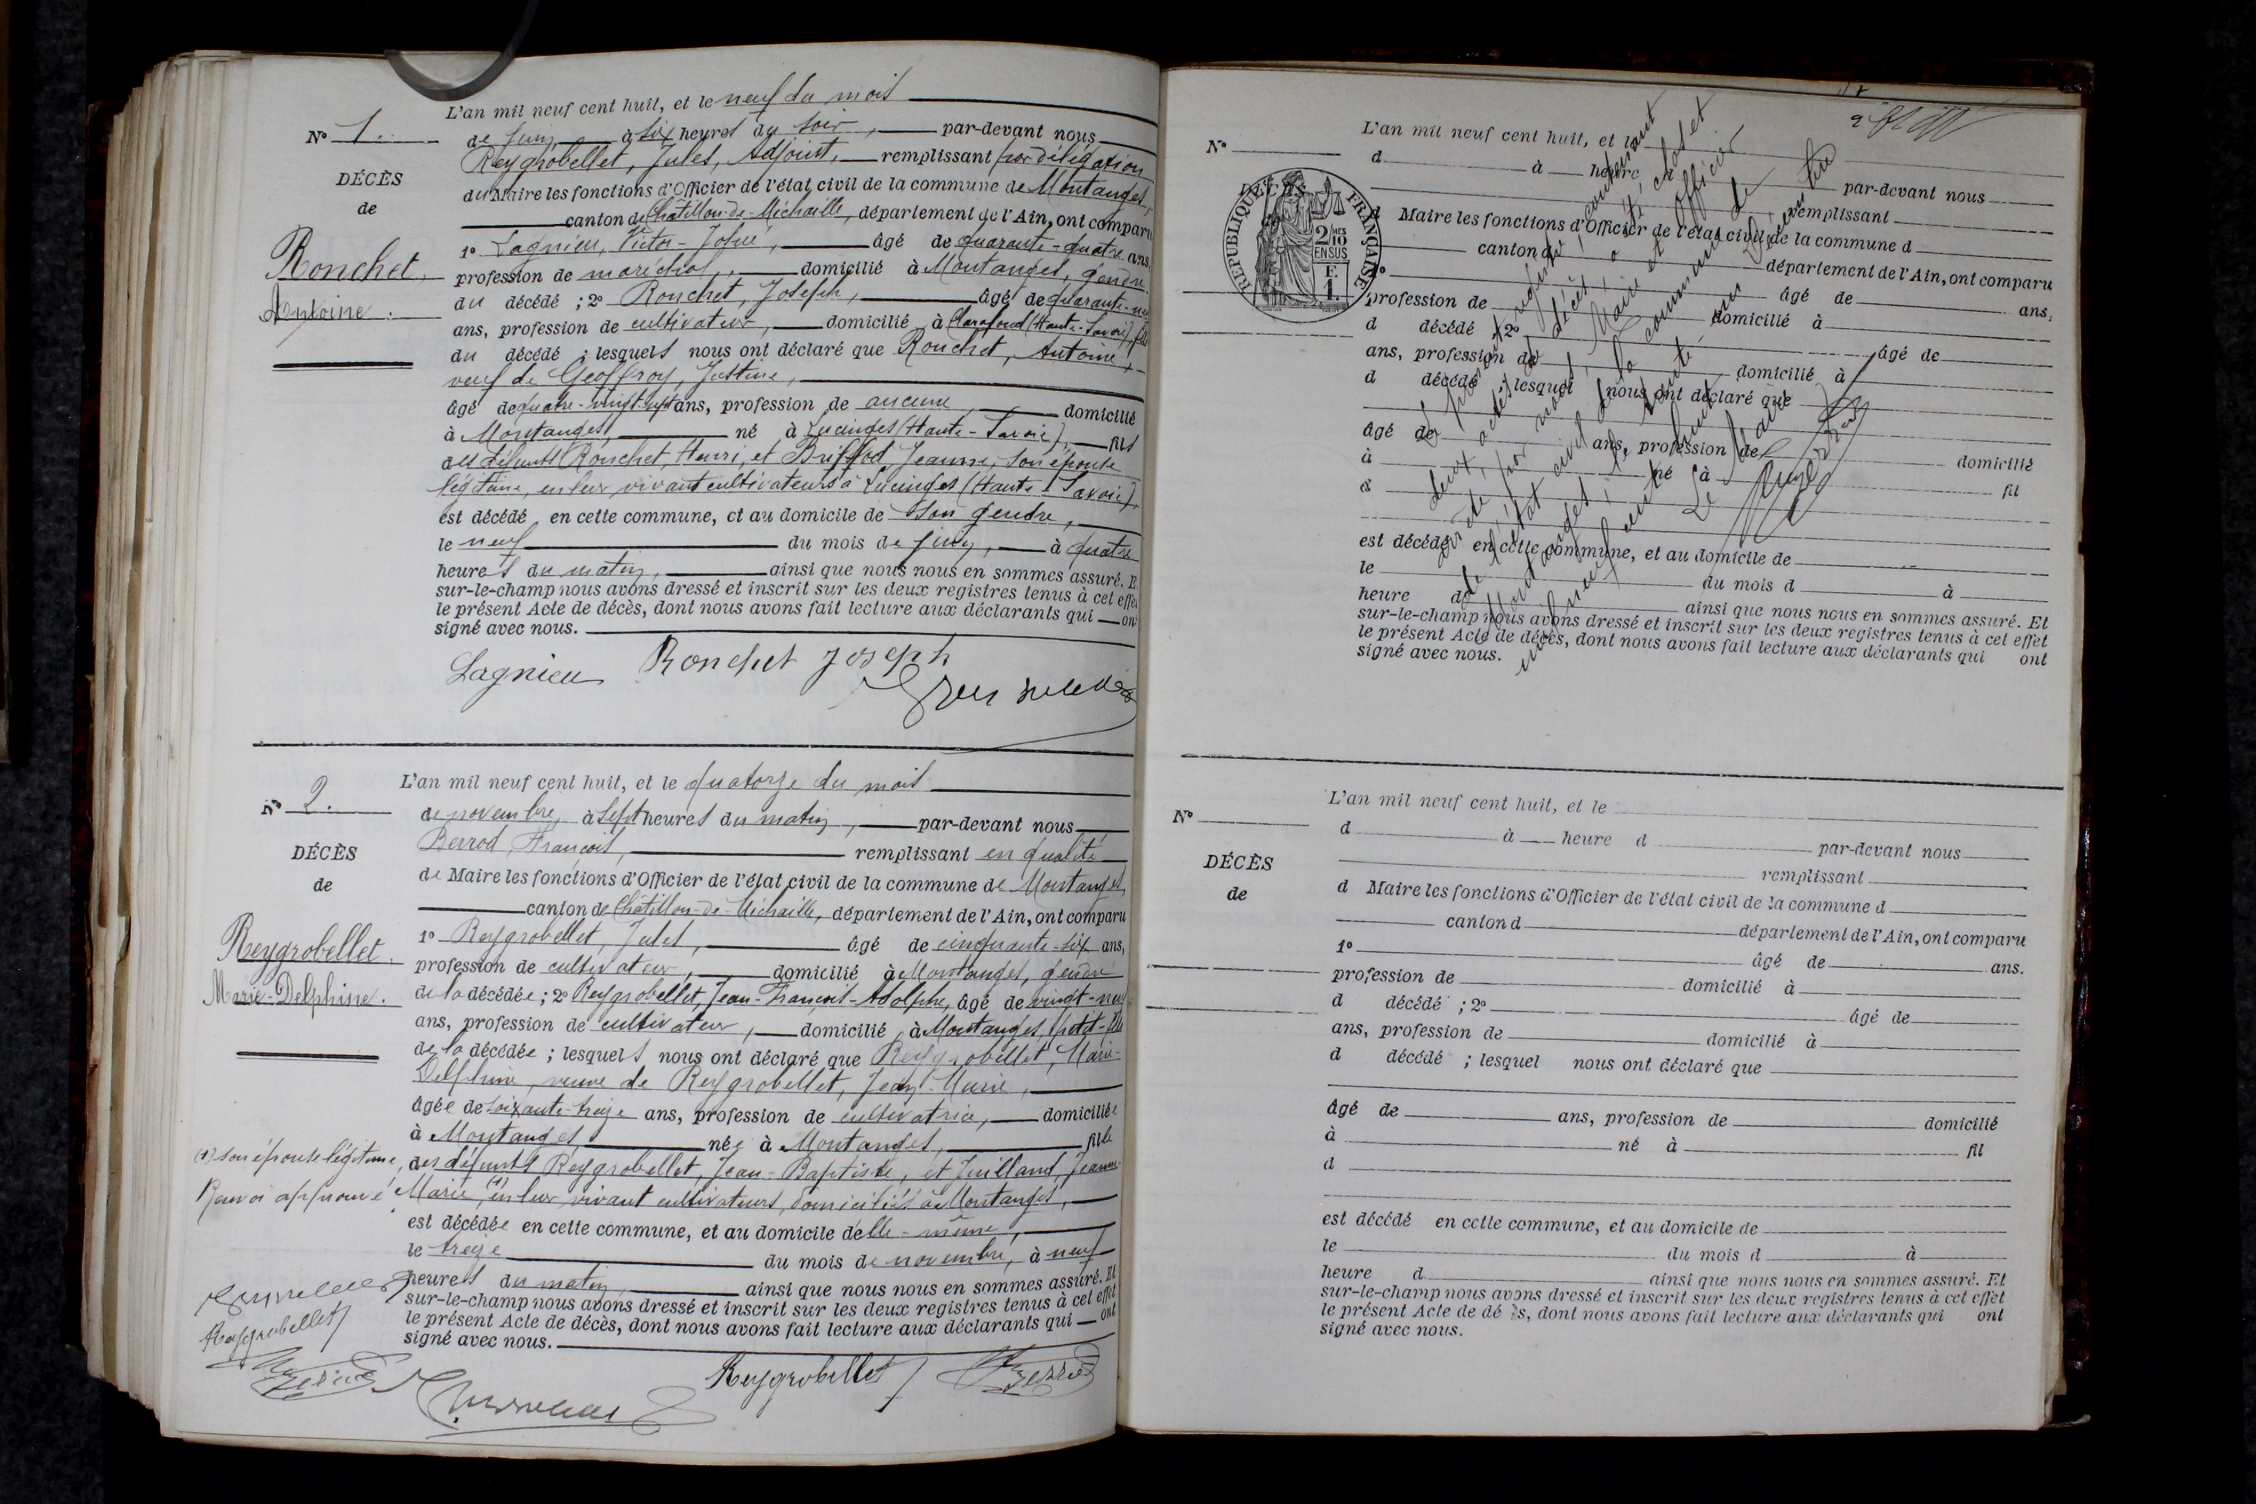 L'an mil neuf cent huit, et le neuf du mois
N° 1.
de Juin, à six heures du soir, par-devant nous
Reygrobellet, Jules, Adjoint, remplissant par délégation
DÉCÈS
de
du Maire les fonctions d'Officier de l'état civil de la commune de Montanges,
canton de Châtillon-de-Michaille, département de l'Ain, ont comparu
1° Lagnieu, Victor-Josué, âgé de quarante-quatre ans,
Ronchet,
Antoine.
profession de maréchal, domicilié à Montanges, gendre
du décédé ; 2° Ronchet, Joseph, âgé de quarante-neuf
ans, profession de cultivateur, domicilié à Clarafond (Haute-Savoie), fils
du décédé ; lesquels nous ont déclaré que Ronchet, Antoine,
veuf de Geoffroy, Justine,
âgé de quatre-vingt-sept ans, profession de aucune domicilié
à Montanges, né à Lucinges (Haute-Savoie), fils
des défunts Ronchet, Henri, et Briffod Jeanne, son épouse
légitime, en leur vivant cultivateurs à Lucinges (Haute-Savoie),
est décédé en cette commune, et au domicile de son gendre,
le neuf du mois de juin, à quatre
heures du matin, ainsi que nous nous en sommes assuré. Et
sur-le-champ nous avons dressé et inscrit sur les deux registres tenus à cet effet
le présent Acte de décès, dont nous avons fait lecture aux déclarants qui ont
signé avec nous.
Lagnieu Ronchet Joseph
L'an mil neuf cent huit, et le quatorze du mois
N° 2.
de novembre, à sept heures du matin, par-devant nous
Berrod, François, remplissant en qualité
DÉCÈS
de
de Maire les fonctions d'Officier de l'état civil de la commune de Montanges
canton de Châtillon-de-Michaille, département de l'Ain, ont comparu
1° Reygrobellet, Jules, âgé de cinquante-six ans,
Reygrobellet.
Marie-Delphine.
profession de cultivateur, domicilié à Montanges, gendre
de la décédée ; 2° Reygrobellet, Jean-François-Adolphe, âgé de vingt-neuf
ans, profession de cultivateur, domicilié à Montanges, petit-fils
de la décédée ; lesquels nous ont déclaré que Reygrobellet, Marie-
Delphine, veuve de Reygrobellet, Jean-Marie,
âgée de soixante-treize ans, profession de cultivatrice, domiciliée
à Montanges, née à Montanges, fille
(1) son épouse légitime,
des défunts Reygrobellet, Jean-Baptiste, et Juilland, Jeanne-
Renvoi approuvé
Marie, (1) en leur vivant cultivateurs, domiciliés à Montanges,
est décédée en cette commune, et au domicile d'elle-même,
le treize du mois de novembre, à neuf
heures du matin, ainsi que nous nous en sommes assuré. Et
sur-le-champ nous avons dressé et inscrit sur les deux registres tenus à cet effet
le présent Acte de décès, dont nous avons fait lecture aux déclarants qui ont
signé avec nous.
Reygrobellet
Reygrobellet
L'an mil neuf cent huit, et le
N°
d à heure par-devant nous
DÉCÈS
RÉPUBLIQUE FRANÇAISE
2/10 MES
EN SUS
F.
1.
remplissant
d Maire les fonctions d'Officier de l'état civil de la commune d
canton d département de l'Ain, ont comparu
1° âgé de ans,
profession de domicilié à
d décédé ; 2° âgé de
ans, profession de domicilié à
d décédé ; lesquel nous ont déclaré que
âgé de ans, profession de domicilié
à né à fil
d
est décédé en cette commune, et au domicile de
le du mois d à
heure d ainsi que nous nous en sommes assuré. Et
sur-le-champ nous avons dressé et inscrit sur les deux registres tenus à cet effet
le présent Acte de décès, dont nous avons fait lecture aux déclarants qui ont
signé avec nous.
Le présent registre, contenant
deux actes de décès, a été clos et
arrêté, par nous, Maire et Officier
de l'état civil de la commune de
Montanges, le trente un Décembre
mil neuf cent huit.
Le Maire
L'an mil neuf cent huit, et le
N°
d à heure d par-devant nous
remplissant
DÉCÈS
de
d Maire les fonctions d'Officier de l'état civil de la commune d
canton d département de l'Ain, ont comparu
1° âgé de ans.
profession de domicilié à
d décédé ; 2° âgé de
ans, profession de domicilié à
d décédé ; lesquel nous ont déclaré que
âgé de ans, profession de domicilié
à né à fil
d
est décédé en cette commune, et au domicile de
le du mois d à
heure d ainsi que nous nous en sommes assuré. Et
sur-le-champ nous avons dressé et inscrit sur les deux registres tenus à cet effet
le présent Acte de décès, dont nous avons fait lecture aux déclarants qui ont
signé avec nous.